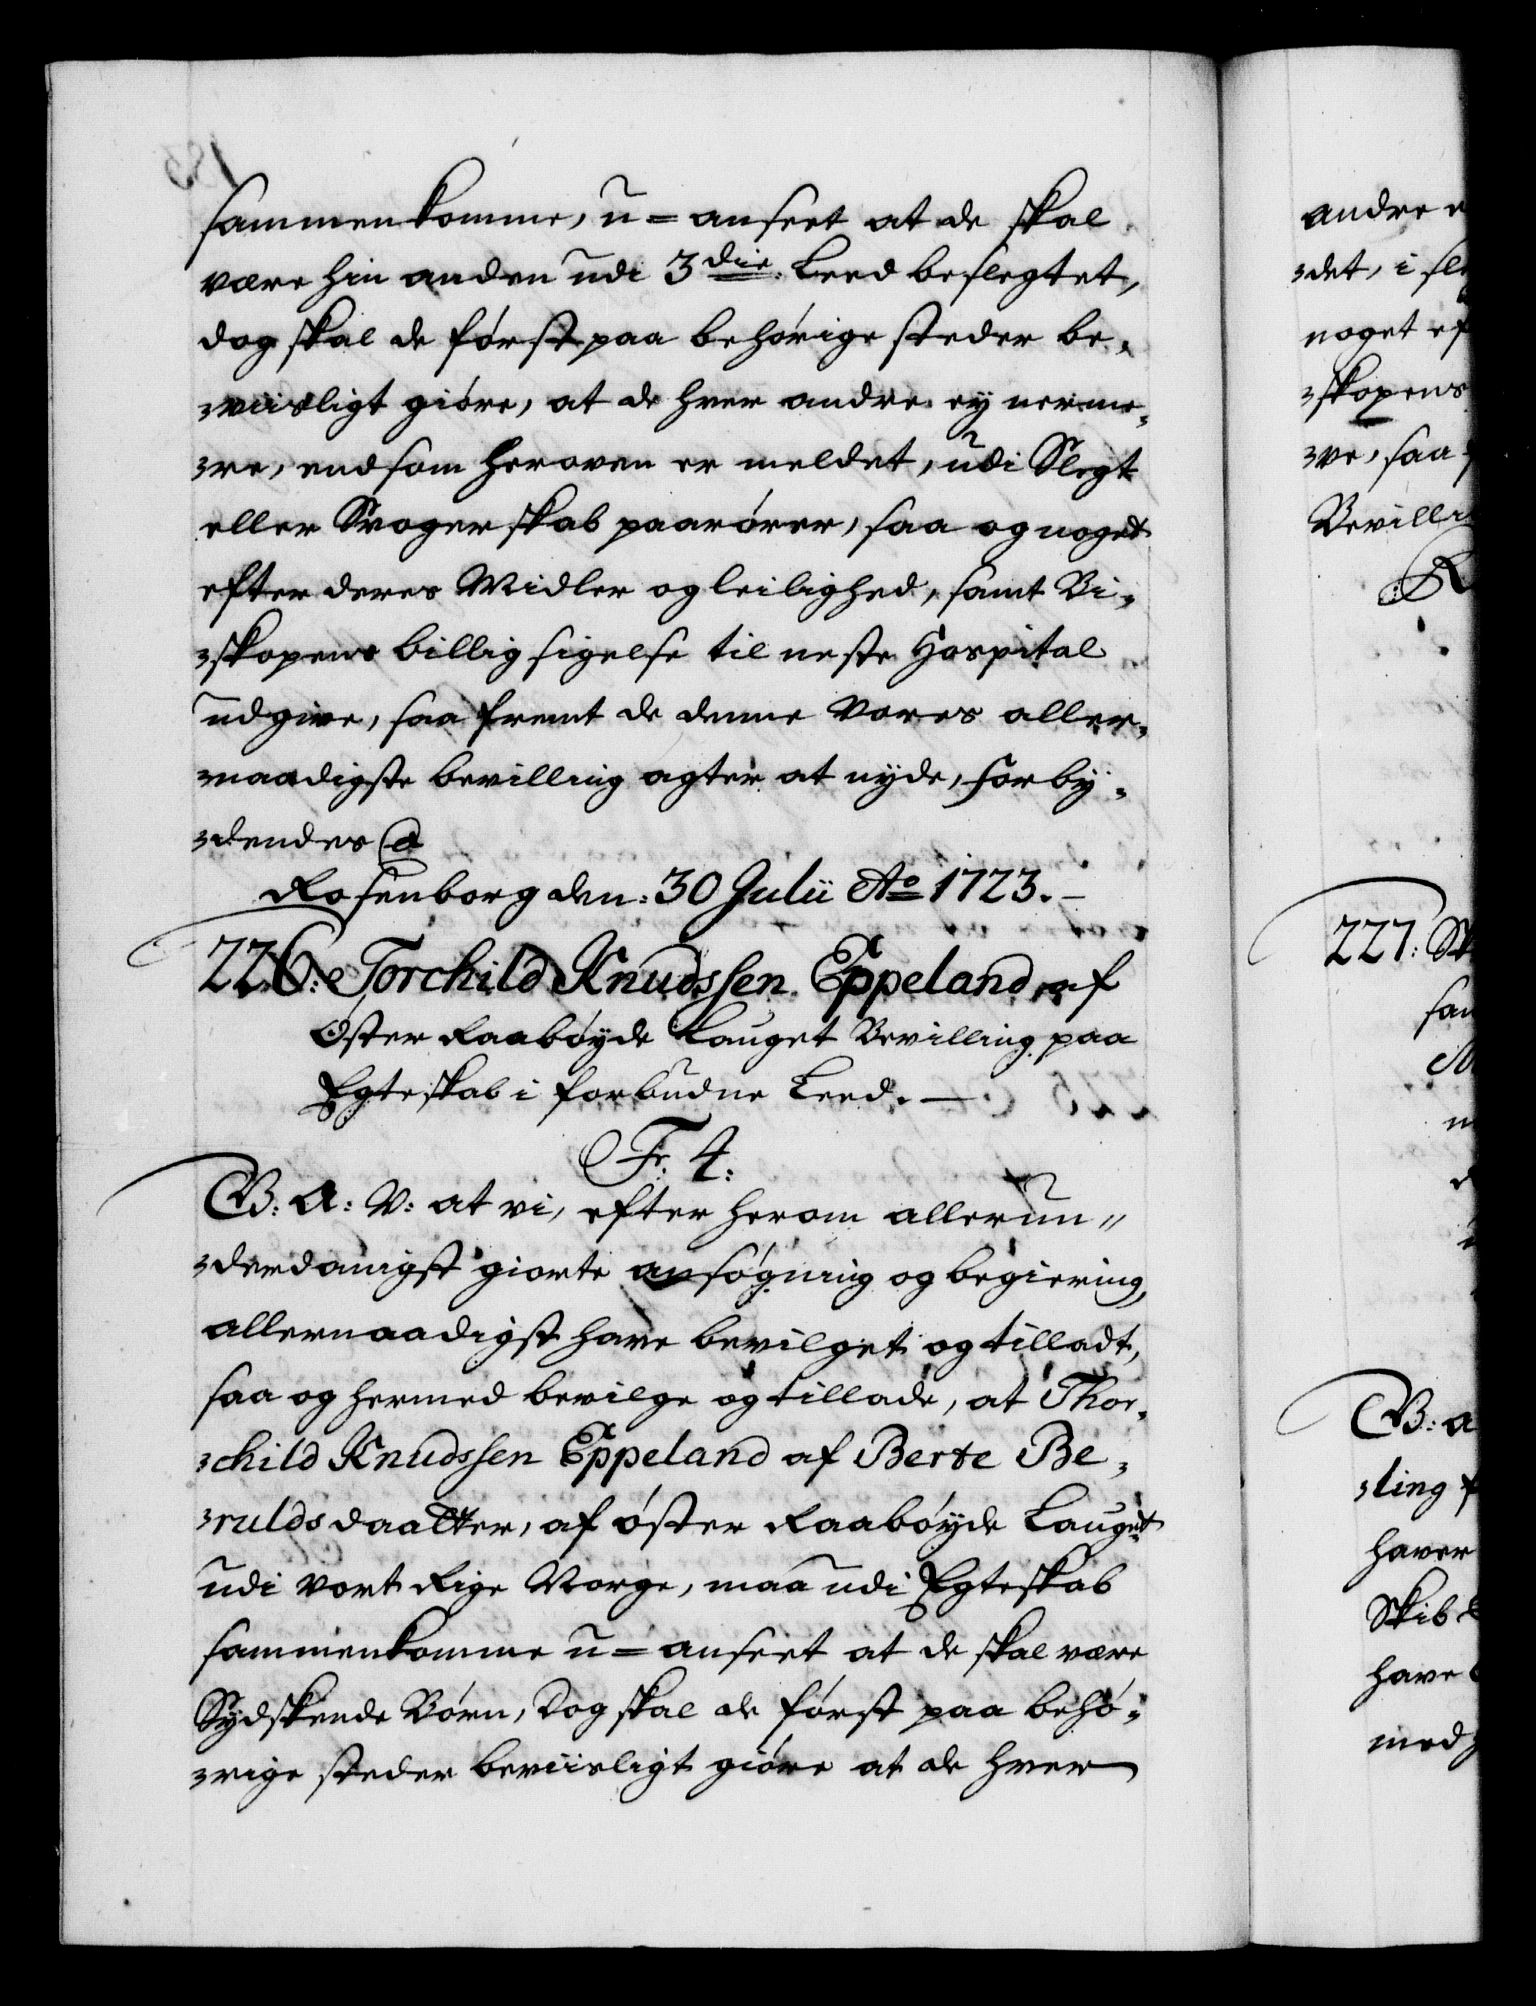 sammenkomme, u=anseet at de skal
være hin anden udi 3die Leed beslegtet,
dog skal de først paa behørige steder be-
-viisligt giøre, at de hver andre ey nerme-
-re, end som heroven er meldet, udi Slegt
eller Svogerskab paarører, saa og noget
efter deres Midler og leilighed, samt Bi-
-skopens billig sigelse til neste Hospital
udgive, saa fremt de denne Vores aller-
-naadigste bevilling agter at nyde, Forby-
-dendes @
Rosenborg den: 30 Julii Ao 1723. -
226: Torchild Knudssen Eppeland, af
Øster Raabøyde Lauget Bevilling paa
Egteskab i forbudne Leed. -
Fr. 4:
G: A: V: at vi, efter herom allerun-
-derdanigst giorte ansøgning og begiering,
allernaadigst have bevilget og tilladt,
saa og hermed bevilge og tillade, at Thor-
-child Knudssen Eppeland af Berte Be-
-rulds daatter, af øster Raabøyde Lauget
udi vort Rige Norge, maa udi Egteskab
sammenkomme u=anseet at de skal være
Sydskende Børn, Dog skal de først paa behø-
-rige steder beviisligt giøre at de hver
andre
-det, i
noget
-skopens
-ve, saa
227:
-ling
haver
Skib
have
med